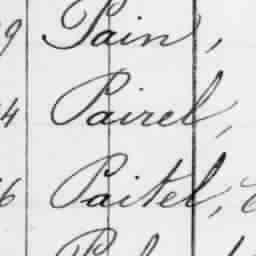 9 Pain,
4 Pairel,
6 Paitel,